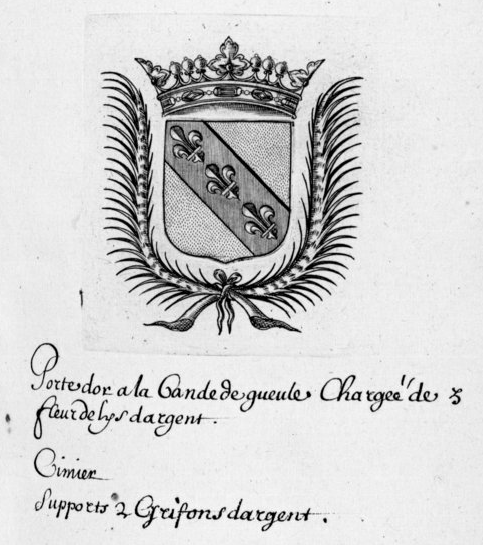 Porte dor a la bande de gueule Chargeé de 3
fleur de lys dargent.
Cimier
Supports 2 Grifons dargent.